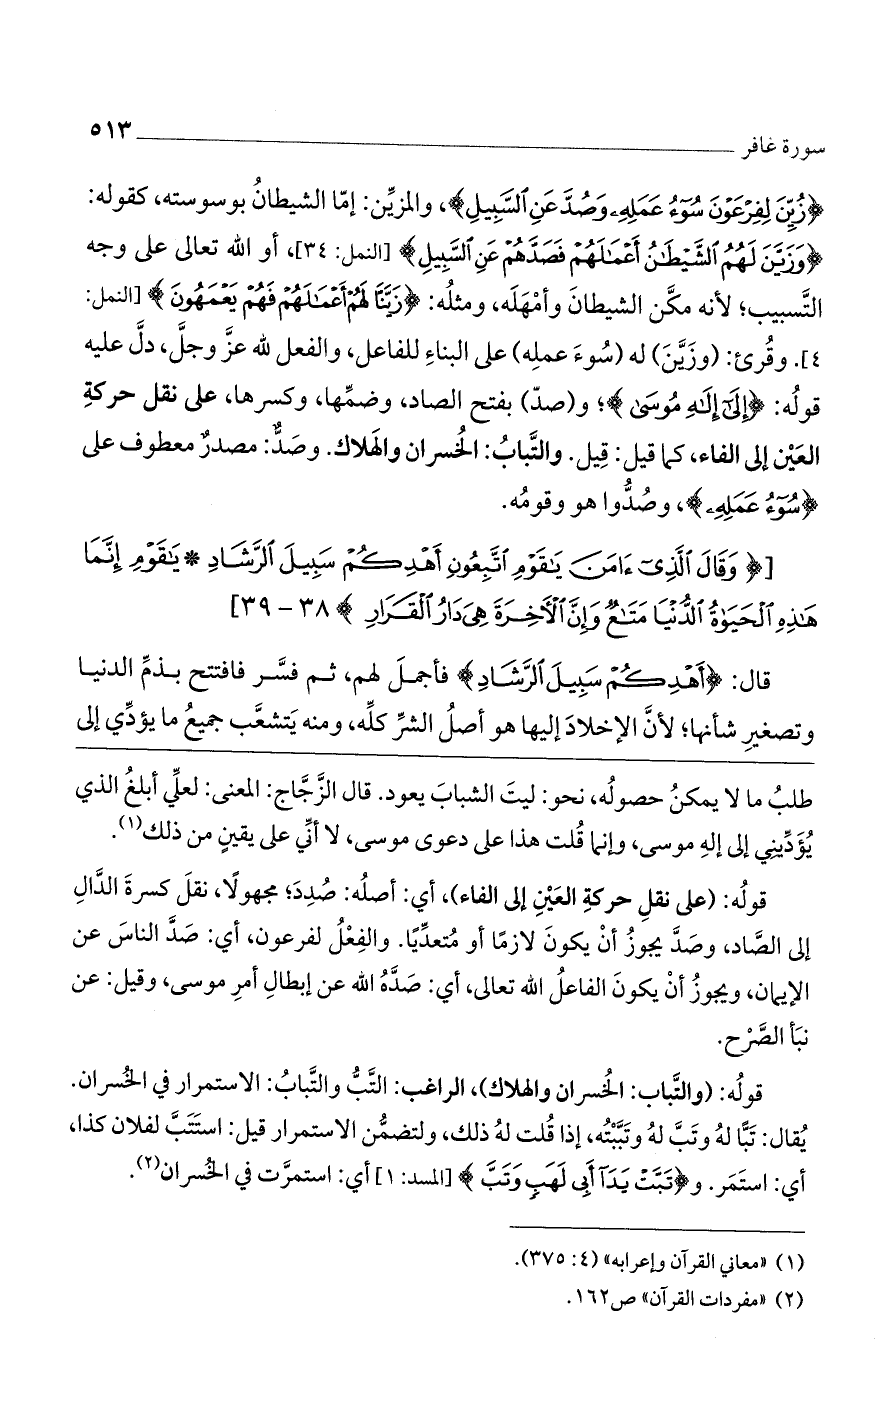 سورة غافر ٥١٣
﴿زُيِّنَ لِفِرْعَوْنَ سُوٓءُ عَمَلِهِۦ وَصُدَّ عَنِ ٱلسَّبِيلِ﴾، والمزيِّن: إمّا الشيطانُ بوسوسته، كقوله:
﴿وَزَيَّنَ لَهُمُ ٱلشَّيْطَٰنُ أَعْمَٰلَهُمْ فَصَدَّهُمْ عَنِ ٱلسَّبِيلِ﴾ [النمل: ٣٤]، أو الله تعالى على وجه
التَّسبيب؛ لأنه مكَّن الشيطانَ وأمْهَلَه، ومثلُه: ﴿زَيَّنَّا لَهُمْ أَعْمَٰلَهُمْ فَهُمْ يَعْمَهُونَ﴾ [النمل:
٤]. وقُرئ: (وزَيَّنَ) له (سُوءَ عملِه) على البناءِ للفاعل، والفعل لله عزَّ وجلَّ، دلَّ عليه
قولُه: ﴿إِلَىٰٓ إِلَٰهِ مُوسَىٰ﴾؛ و(صدّ) بفتح الصاد، وضمِّها، وكسرها، على نقل حركةِ
العَيْن إلى الفاء، كما قيل: قِيل. والتَّبابُ: الخُسران والهَلاك. وصَدٌّ: مصدرٌ معطوف على
﴿سُوٓءُ عَمَلِهِۦ﴾، وصُدُّوا هو وقومُه.
[﴿وَقَالَ ٱلَّذِىٓ ءَامَنَ يَٰقَوْمِ ٱتَّبِعُونِ أَهْدِكُمْ سَبِيلَ ٱلرَّشَادِ * يَٰقَوْمِ إِنَّمَا
هَٰذِهِ ٱلْحَيَوٰةُ ٱلدُّنْيَا مَتَٰعٌ وَإِنَّ ٱلْءَاخِرَةَ هِىَ دَارُ ٱلْقَرَارِ﴾ ٣٨ - ٣٩]
قال: ﴿أَهْدِكُمْ سَبِيلَ ٱلرَّشَادِ﴾ فأجملَ لهم، ثم فسَّر فافتتح بذمِّ الدنيا
وتصغيرِ شأنها؛ لأنَّ الإخلادَ إليها هو أصلُ الشرِّ كلِّه، ومنه يَتشعَّب جميعُ ما يؤدِّي إلى
طلبُ ما لا يمكنُ حصولُه، نحو: ليتَ الشبابَ يعود. قال الزَّجَّاج: المعنى: لعلِّي أبلغُ الذي
يُؤَدِّيني إلى إلهِ موسى، وإنما قُلت هذا على دعوى موسى، لا أنِّي على يقينٍ من ذلك(١).
قولُه: (على نقلِ حركةِ العَيْنِ إلى الفاء)، أي: أصلُه: صُدِدَ؛ مجهولًا، نقلَ كسرةَ الدَّالِ
إلى الصَّاد، وصَدَّ يجوزُ أنْ يكونَ لازمًا أو مُتعدِّيًا. والفِعْلُ لفرعون، أي: صَدَّ الناسَ عن
الإيمان، ويجوزُ أنْ يكونَ الفاعلُ الله تعالى، أي: صَدَّهُ الله عن إبطالِ أمرِ موسى، وقيل: عن
نبَأ الصَّرْح.
قولُه: (والتَّباب: الخُسران والهلاك)، الراغب: التَّبُّ والتَّبابُ: الاستمرار في الخُسران.
يُقال: تبًّا لهُ وتَبَّ لهُ وتبَّبْتُه، إذا قُلت لهُ ذلك، ولتضمُّن الاستمرار قيل: استَتَبَّ لفلان كذا،
أي: استمَر. و﴿تَبَّتْ يَدَآ أَبِى لَهَبٍ وَتَبَّ﴾ [المسد: ١] أي: استمرَّت في الخُسران(٢).
(١) «معاني القرآن وإعرابه» (٤: ٣٧٥).
(٢) «مفردات القرآن» ص١٦٢.